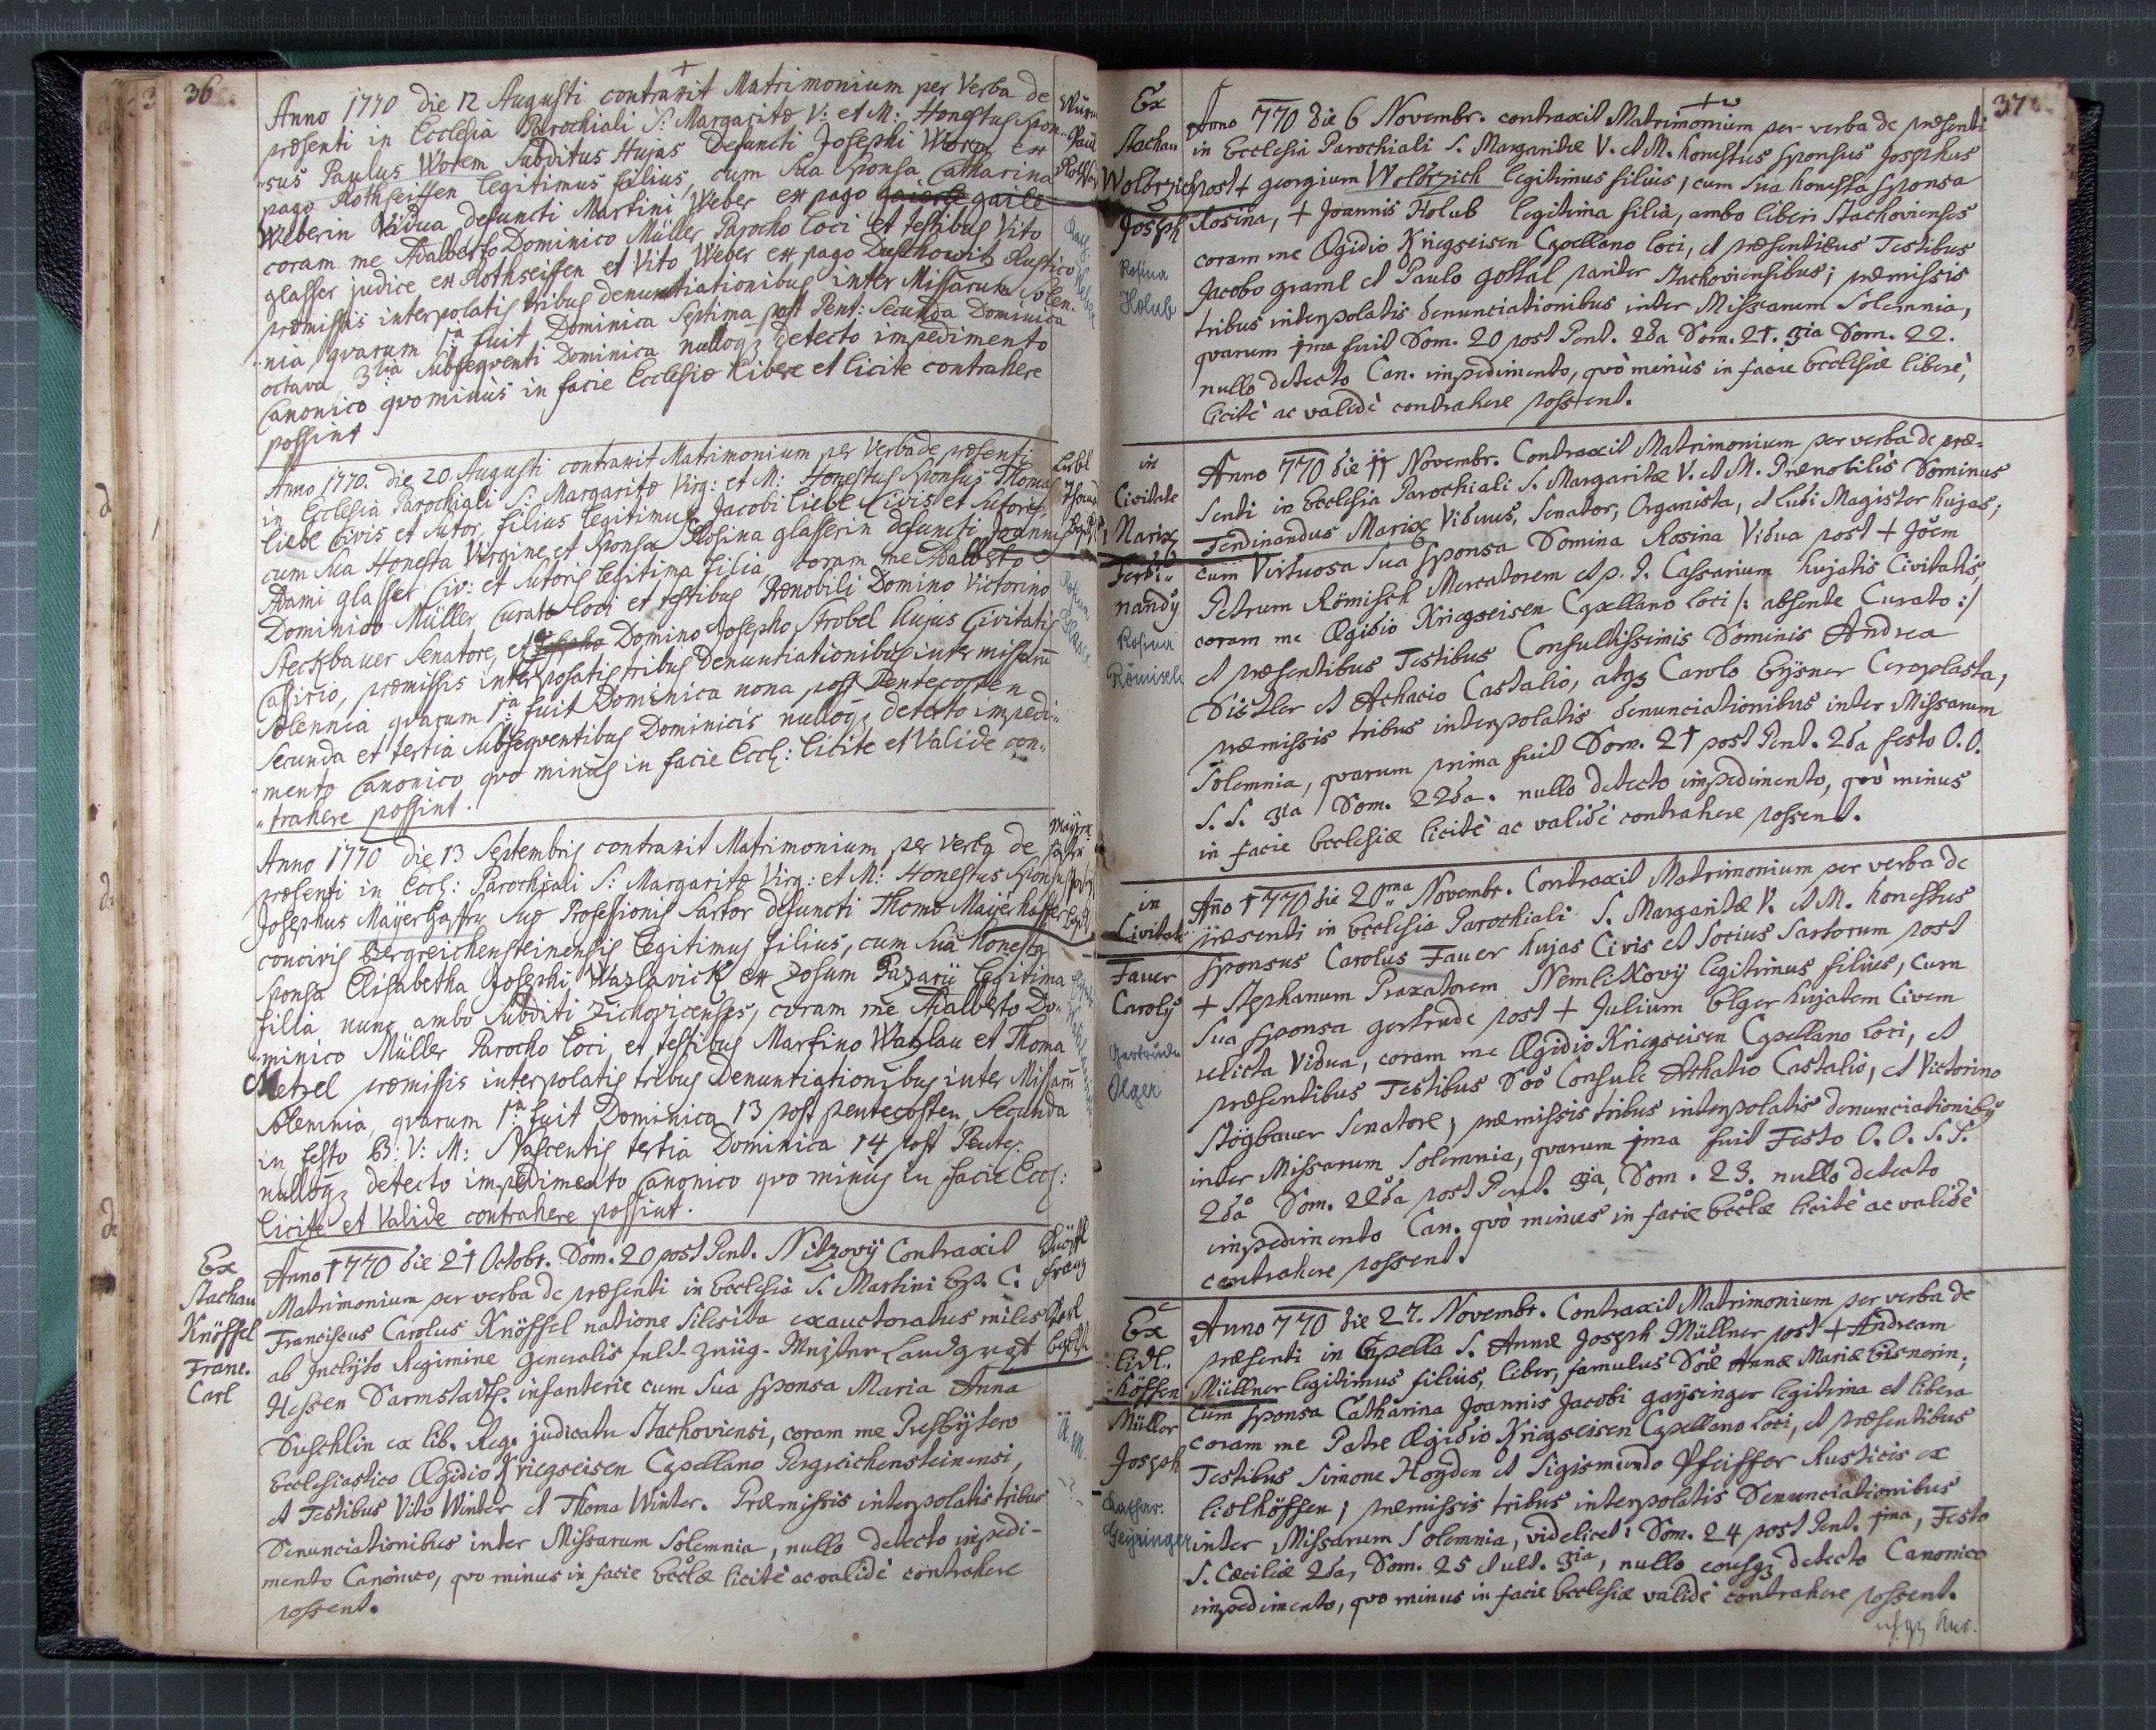 36
Anno 1770 die 12 Augusti contraxit Matrimonium per Verba de
præsenti in Ecclesia Parochiali S: Margaritæ V: et M: Honestus Spon-
-sus Paulus Worem Subditus Hujas Defuncti Josephi Worem ex
pago Rothseiffen legitimus filius, cum sua Sponsa Catharina
Weberin Vidua defuncti Martini Weber ex pago gaile
coram me Adalberto Dominico Müller Parocho loci et testibus Vito
glasser judice ex Rothseiffen et Vito Weber ex pago Duschowitz Rustico
præmissis interpolatis tribus denuntiationibus inter Missarum Solem-
-nia, quarum 1a fuit Dominica Septima post Pent: Secunda Dominica
octava 3tia subsequenti Dominica nulloq detecto impedimento
Canonico quominus in facie Ecclesiæ libere et licite contrahere
possint
Anno 1770. die 20. Augusti contraxit Matrimonium per Verba de præsenti
in Ecclesia Parochiali S: Margaritæ Virg: et M: Honestus Sponsus Thomas
liebl Civis et Sutor, filius legitimus Jacobi liebl Civis et Sutoris
cum sua Honesta Virgine et Sponsa Rosina glasserin defuncti Joannis
Adami glasser Civ: et Sutoris legitima filia coram me Adalberto
Dominico Müller Curato loci et testibus Prænobili Domino Victorino
Steckbauer Senatore, et Domino Josepho Strobel hujus Civitatis
Cassirio, præmissis interpolatis tribus denuntiationibus inter missarum
Solennia quarum 1a fuit Dominica nona post Pentecosten
Secunda et tertia Subsequentibus Dominicis nulloq detecto impedi-
-mento Canonico quo minus in facie Eccl: licite et Valide con-
-trahere possint.
Anno 1770 die 13 Septembris contraxit Matrimonium per verba de
præsenti in Eccl: Parochiali S: Margaritæ Virg: et M: Honestus Sponsus
Josephus Mayerhaffer suæ Professionis Sartor defuncti Thomæ Maijerhaffer
concivis Bergreichensteinensis legitimus filius, cum sua honesta
Sponsa Elisabetha Josephi Wazlavick ex Zosum legitima
filia nunc ambo Subditi Zichovicenses, coram me Adalberto Do-
-minico Müller Parocho loci et testibus Martino Wazlau et Thoma
Metzel præmissis interpolatis tribus Denuntiationibus inter Missarum
Solemnia, quarum 1a fuit Dominica 13 post pentecosten, Secunda
in festo B: V: M: Nascentis tertia Dominica 14 post Pentec.
nulloq detecto impedimento Canonico quo minus in facie Eccl:
licite et Valide contrahere possint.
Ex
Stachau
Knöffel
Franc.
Carl
Anno 1770 die 21 Octobr. Dom. 20 post Pent. Nitzovij Contraxit
Matrimonium per verba de præsenti in Ecclesia S. Martini Ep. C.
Franciscus Carolus Knöffel natione Silesita exauctoratus miles
ab Inclyto Regimine Generalis Feld-Zeüg-Meister Landgraf
Hessen Darmstadt. infanterie cum Sua Sponsa Maria Anna
Duschlin ex lib. Reg. judicatu Stachoviensi, coram me Presbytero
Ecclesiastico Ægidio Kriegseisen Capellano Pergreichensteinensi,
et Testibus Vito Winter et Thoma Winter. Præmissis interpolatis tribus
Denunciationibus inter Missarum Solemnia, nullo detecto impedi-
mento Canonico, quo minus in facie Ecclæ licitè ac validè contrahere
possent.
37
Ex
Stachau
Wolbrzich
Joseph
Rosina
Holub
Anno 770 die 6 Novembr. contraxit Matrimonium per verba de præsenti
in Ecclesia Parochiali S. Margaritæ V. et M. honestus Sponsus Josephus
post + georgium Wolbrzich legitimus filius, cum sua honesta Sponsa
Rosina, + Joannis Holub legitima filia, ambo liberi Stachovienses
coram me Ægidio Kriegseisen Capellano loci, et præsentibus Testibus
Jacobo graml et Paulo gottal pariter Stachoviensibus; præmissis
tribus interpolatis denunciationibus inter Missarum Solemnia,
quarum 1ma fuit Dom. 20 post Pent. 2da Dom. 21. 3ia Dom. 22.
nullo detecto Can. impedimento, quò minùs in facie Ecclesiæ liberè,
licitè ac validè contrahere possent.
in
Civitate
Marix
Ferdi-
nandy
Rosina
Römisch
Anno 770 die 11 Novembr. Contraxit Matrimonium per verba de præ-
senti in Ecclesia Parochiali S. Margaritæ V. et M. Prænobilis Dominus
Ferdinandus Marix Viduus, Senator, Organista, et Ludi Magister hujas,
cum Virtuosa sua Sponsa Domina Rosina Vidua post + Joem
Petrum Römisch Mercatorem et p. t. Cassarium hujatis Civitatis,
coram me Ægidio Kriegseisen Capellano loci /: absente Curato :/
et præsentibus Testibus Consultissimis Dominis Andrea
Distler et Achacio Castalio, atqz Carolo Eysner Ceroplasta,
præmissis tribus interpolatis denunciationibus inter Missarum
Solemnia, quarum prima fuit Dom. 21 post Pent. 2da festo O. O.
S. S. 3ia Dom. 22da. nullo detecto impedimento, quò minus
in facie Ecclesiæ licitè ac validè contrahere possent.
in
Civitate
Fauer
Caroly
Gertrudis
Elger
Año 1770 die 20ma Novembr. Contraxit Matrimonium per verba de
præsenti in Ecclesia Parochiali S. Margaritæ V. et M. honestus
Sponsus Carolus Fauer hujas Civis et Socius Sartorum post
+ Stephanum Praxatorem Nemelikovij legitimus filius, cum
Sua Sponsa gertrude post + Julium Elger hujatem Civem
relicta Vidua, coram me Ægidio Kriegseisen Capellano loci, et
præsentibus Testibus Dño Consule Achatio Castalio, et Victorino
Stögbauer Senatore, præmissis tribus interpolatis denunciationiby
inter Missarum Solemnia, quarum 1ma fuit Festo O. O. S. S.
2da Dom. 22da post Pent. 3ia, Dom. 23. nullo detecto
impedimento Can. quò minus in facie Ecclæ licitè ac validè
contrahere possent.
Ex
lidl.
höffen
Müller
Joseph
Cathar.
Geysinger
Anno 770 die 27. Novembr. Contraxit Matrimonium per verba de
præsenti in Capella S. Annæ Joseph Müllner post + Andream
Müllner legitimus filius, liber, famulus Dnæ Annæ Mariæ Eisnerin,
cum Sponsa Catharina Joannis Jacobi gaysinger legitima et libera
coram me Patre Ægidio Kriegseisen Capellano loci, et præsentibus
Testibus Simone Hoyden et Sigismundo Pfeiffer Rusticis ex
lidlhöffen, præmissis tribus interpolatis Denunciationibus
inter Missarum Solemnia, videlicet: Dom. 24 post Pent. 1ma, Festo
S. Cæciliæ 2da, Dom. 25 et ult. 3ia, nullo eousqz detecto Canonico
impedimento, quo minus in facie Ecclesiæ validè contrahere possent.
usqz huc.